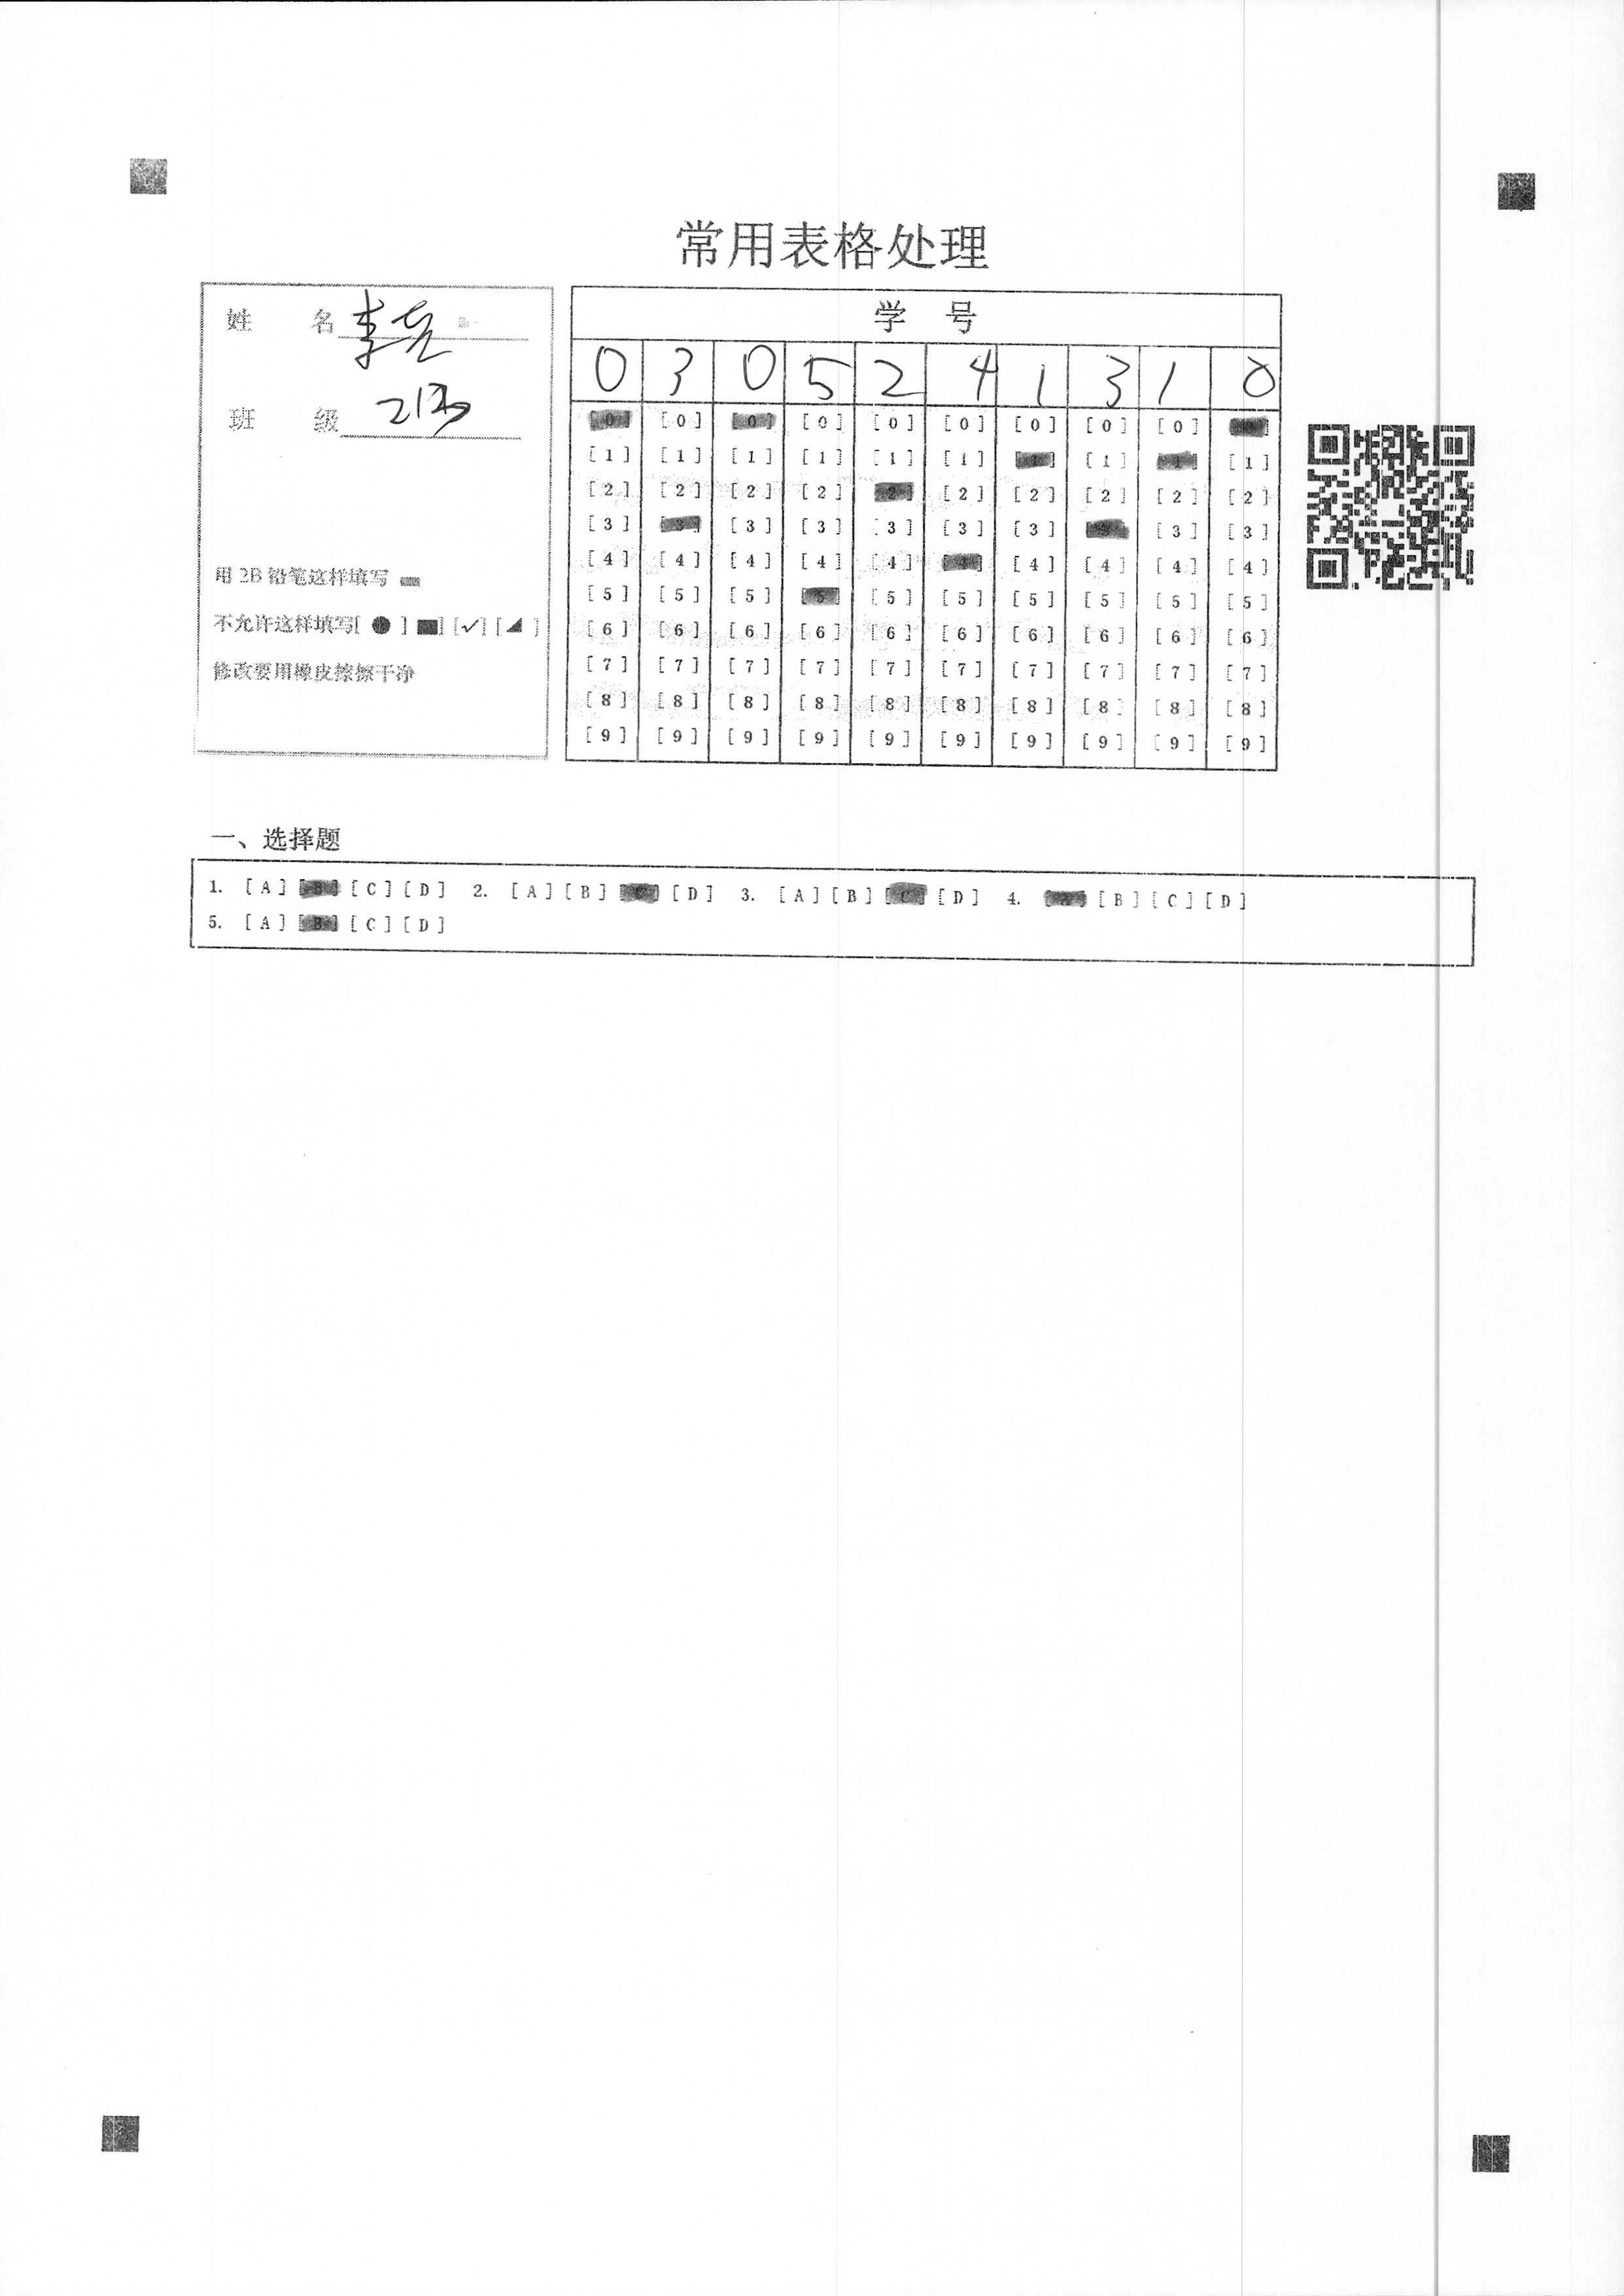 常用表格处理
姓 名 李亮
班 级
用 2B 铅笔这样填写
不允许这样填写[ ● ] [✓] [◢ ]
修改要用橡皮擦擦干净
学 号
0 3 0 5 2 4 1 3 1 0
[0] [0] [0] [0] [0] [0] [0] [0] [0] [0]
[1] [1] [1] [1] [1] [1] [1] [1] [1] [1]
[2] [2] [2] [2] [2] [2] [2] [2] [2] [2]
[3] [3] [3] [3] [3] [3] [3] [3] [3] [3]
[4] [4] [4] [4] [4] [4] [4] [4] [4] [4]
[5] [5] [5] [5] [5] [5] [5] [5] [5] [5]
[6] [6] [6] [6] [6] [6] [6] [6] [6] [6]
[7] [7] [7] [7] [7] [7] [7] [7] [7] [7]
[8] [8] [8] [8] [8] [8] [8] [8] [8] [8]
[9] [9] [9] [9] [9] [9] [9] [9] [9] [9]
一、选择题
1. [A] [B] [C] [D] 2. [A] [B] [C] [D] 3. [A] [B] [C] [D] 4. [A] [B] [C] [D]
5. [A] [B] [C] [D]